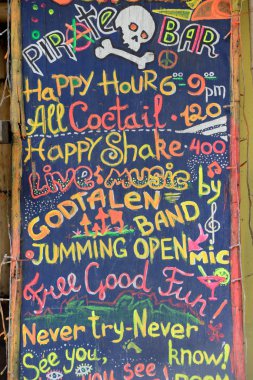 PIRATE BAR
Happy Hour 6-9pm
All Coctail · 120
Happy Shake · 400
Live music by
GODTALEN
BAND
JUMMING OPEN MIC
Feel Good Fun!
Never try-Never
know!
See you,
you see!